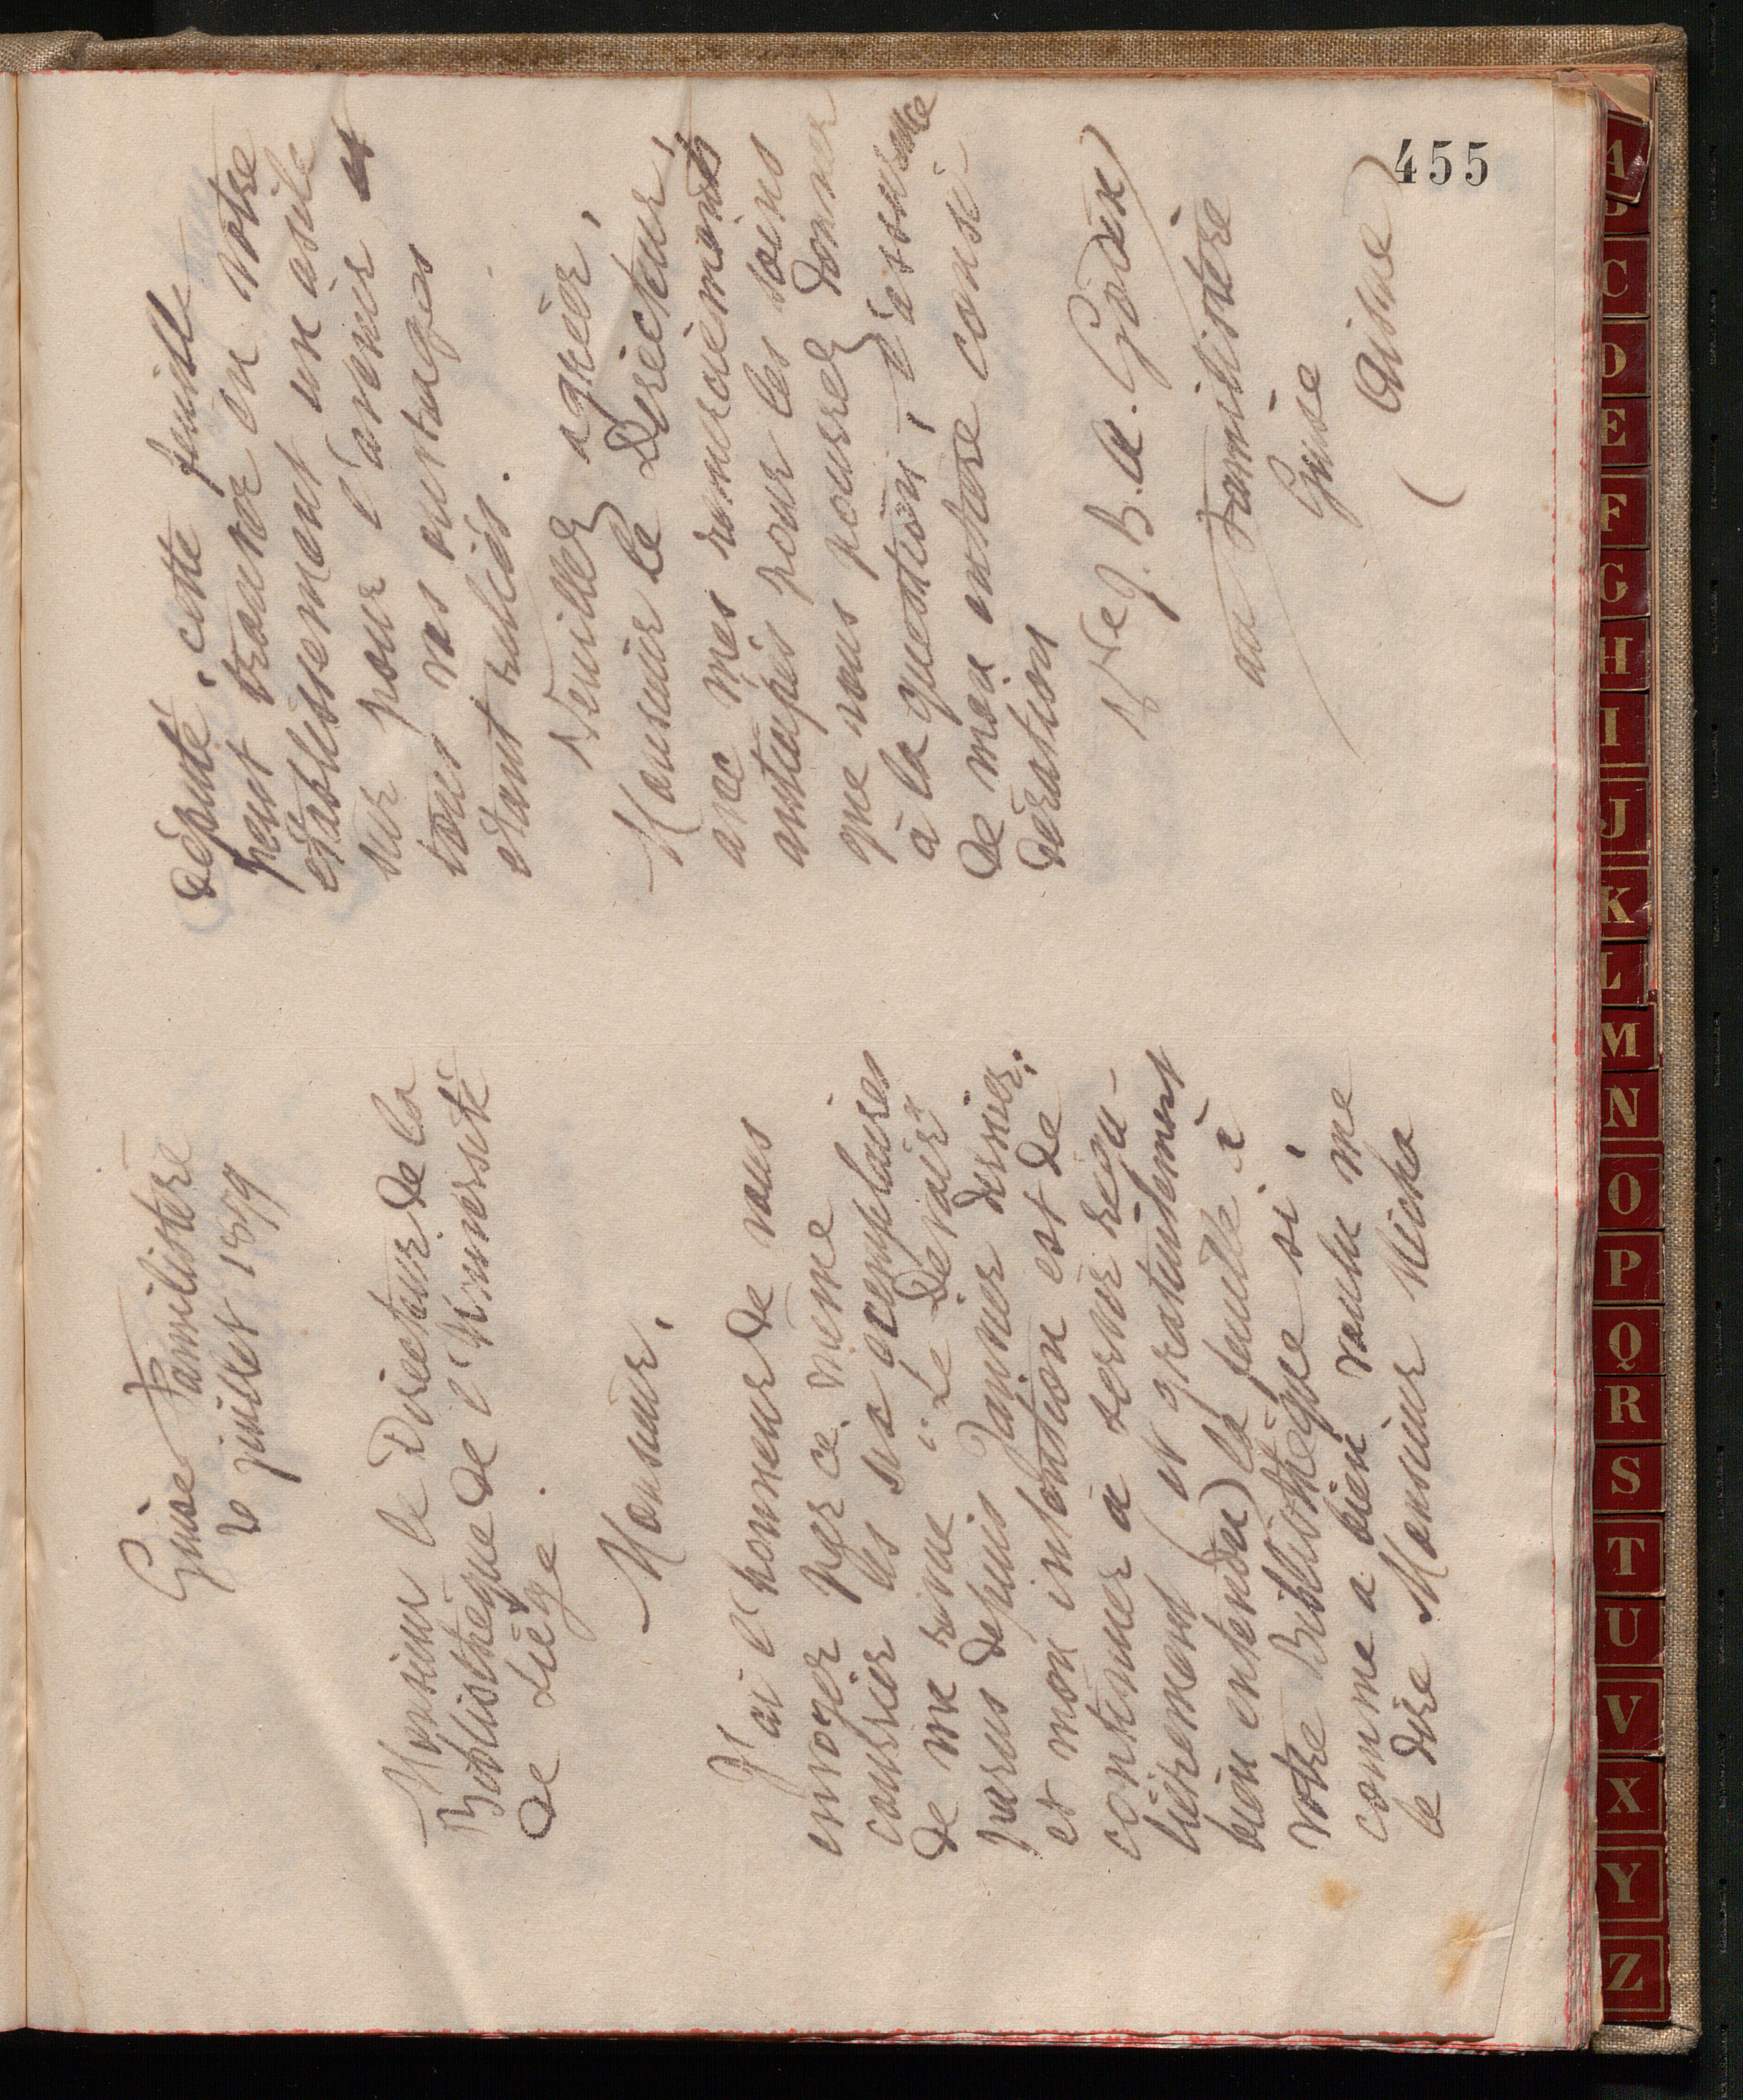 455
Guise Familistère
6 juillet 1879
Monsieur le Directeur de la
Bibliothèque de l'Université
de Liège.
Monsieur,
J'ai l'honneur de vous
envoyer par ce même
courrier les six exemplaires
de ma revue "Le Devoir"
parus depuis Janvier dernier;
et mon intention est de
continuer à servir régu-
lièrement et gratuitement
bien entendu) la feuille à
votre Bibliothèque si,
comme a bien voulu me
le dire Monsieur Micha
député, cette feuille
peut trouver en votre
établissement un asile
sur pour l'avenir et
tous vos ouvrages
étant reliés.
Veuillez agréer,
Monsieur le Directeur,
avec mes remerciements
anticipés pour les soins
que vous pourrez donner
à la question, l'assurance
de mon entière consi-
dération
Vve J. B. A. Godin
au Familistère
Guise
(Aisne)
A
C
D
E
F
G
H
I
J
K
L
M
N
O
P
Q
R
S
T
U
V
X
Y
Z